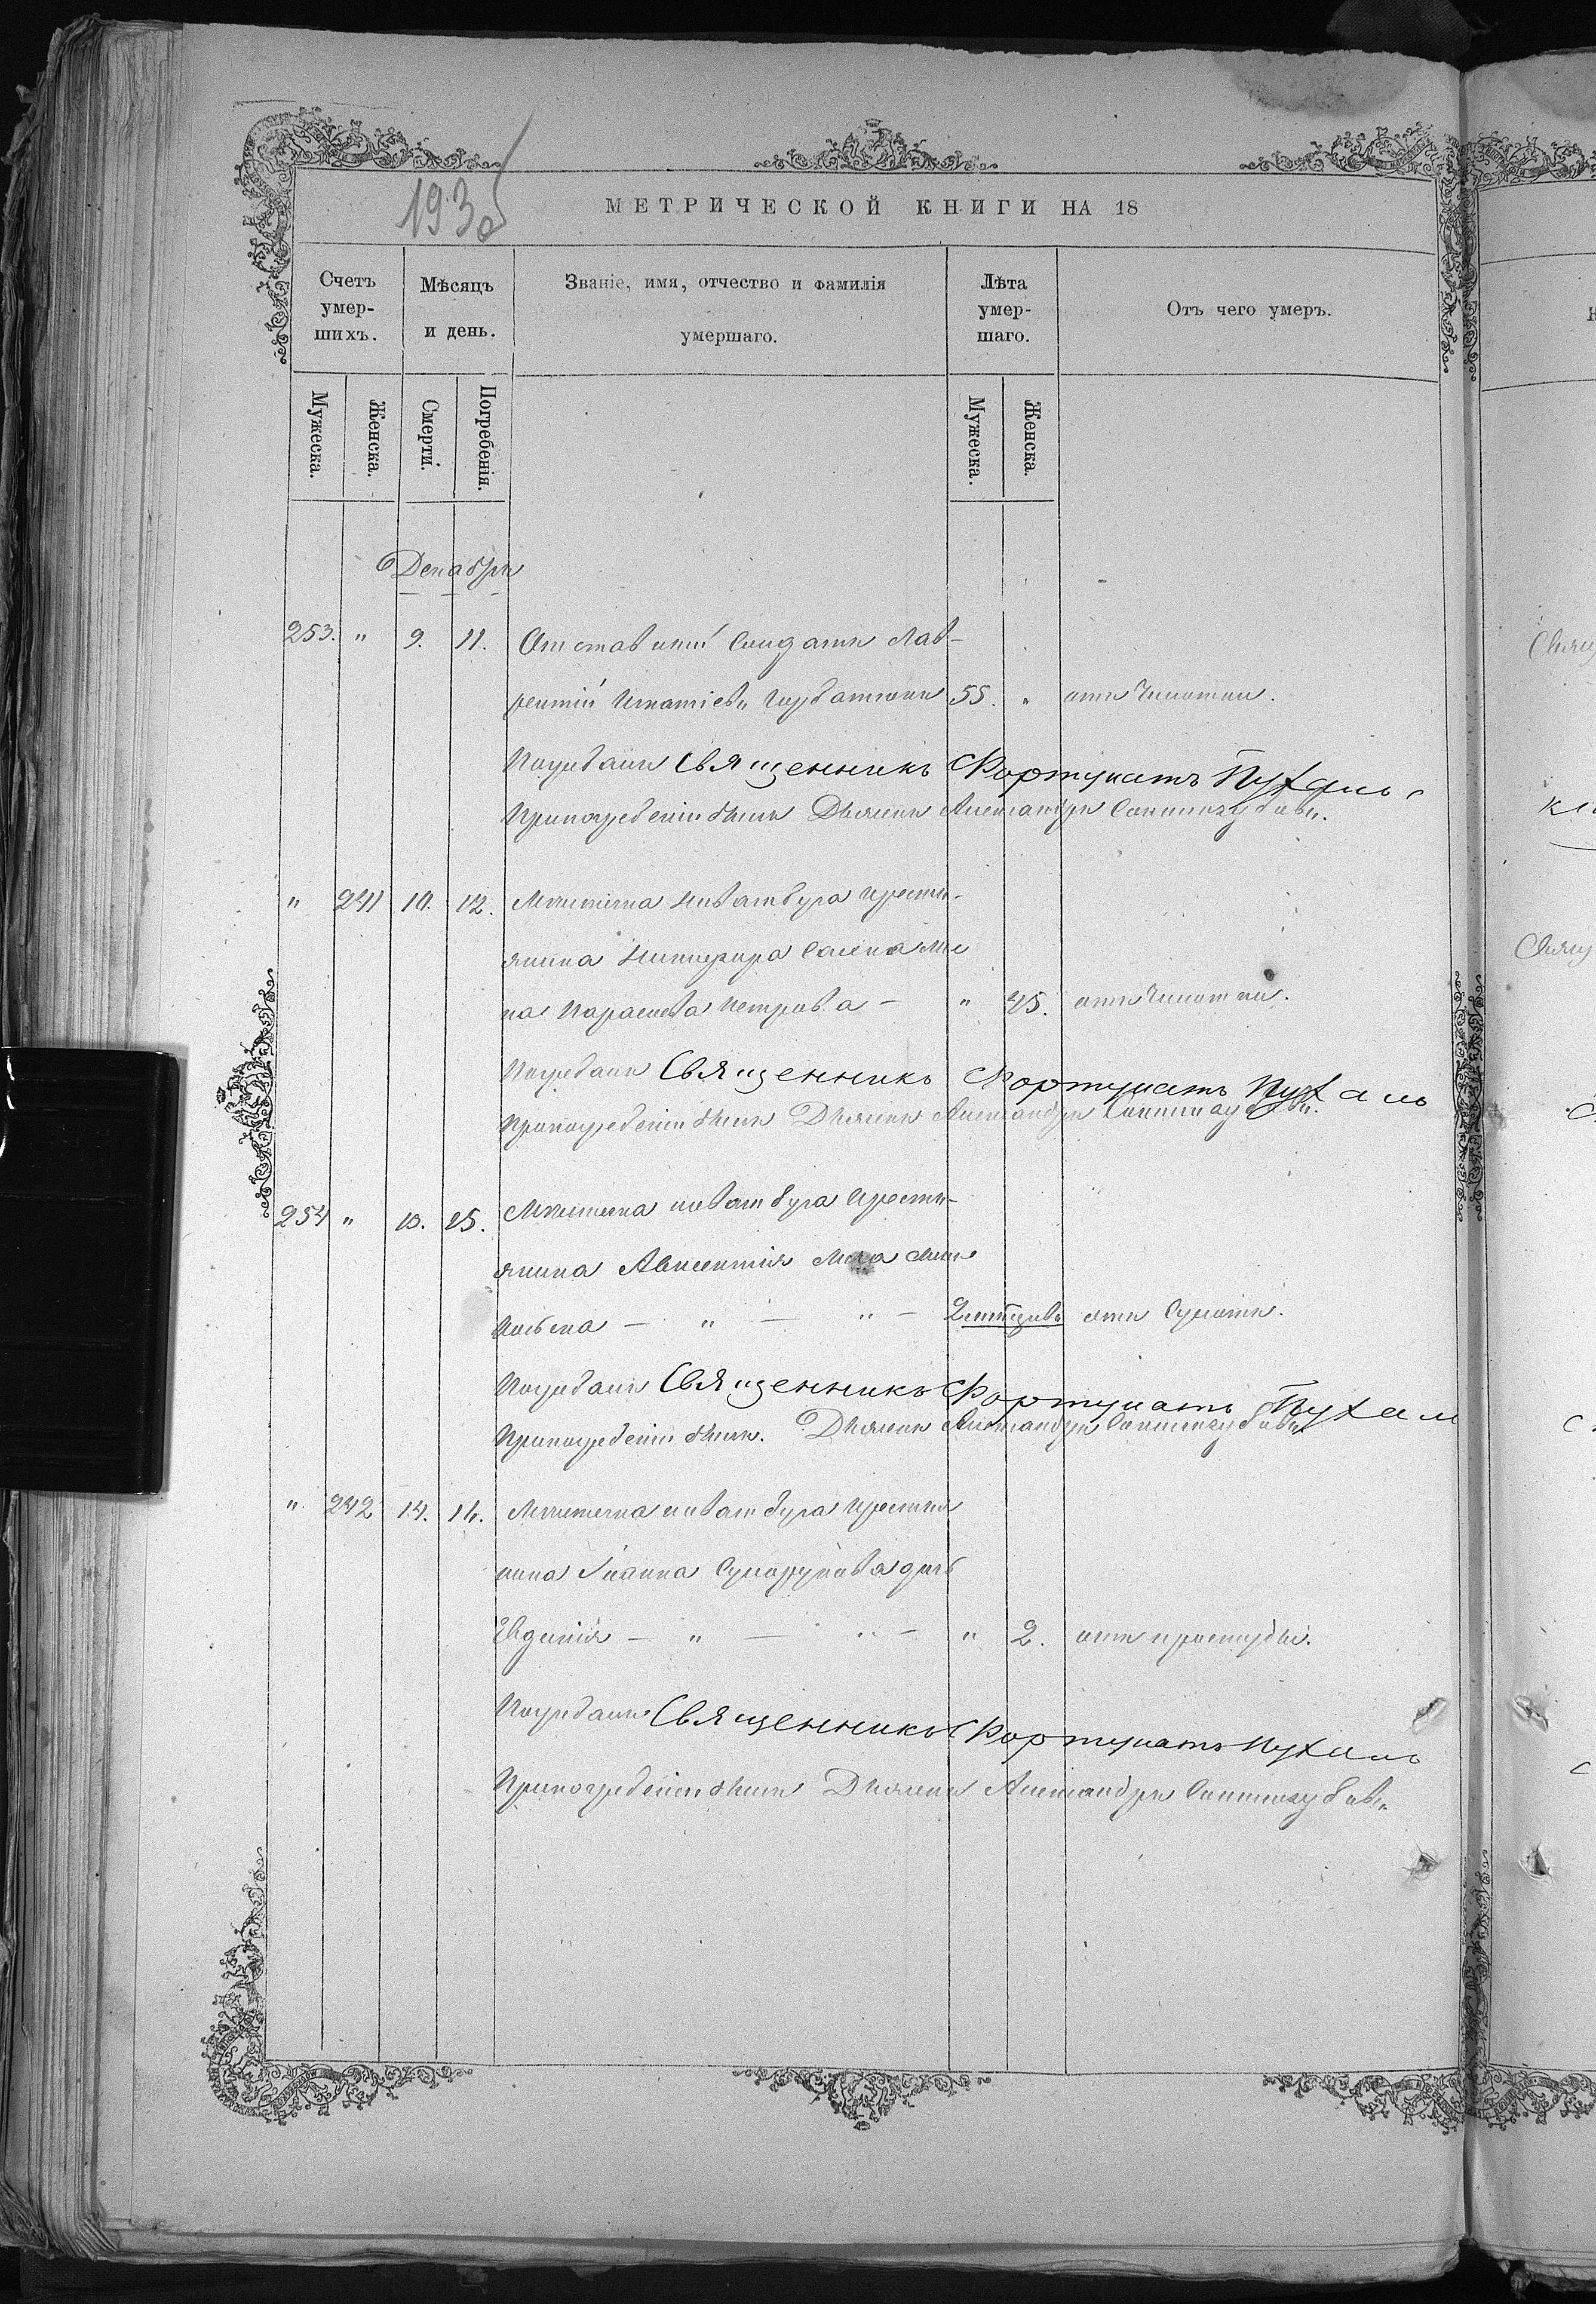 193об
МЕТРИЧЕСКОЙ КНИГИ НА 18
Счетъ умершихъ.
Мѣсяцъ и день.
Званіе, имя, отчество и фамилія умершаго.
Лѣта умершаго.
Отъ чего умеръ.
Мужеска.
Женска.
Смерти.
Погребенія.
Мужеска.
Женска.
Декабрь
253. " 9. 11. Отставный Солдатъ Лав-
рентій Игнатіевъ Горбатюкъ 55. " отъ Чахотки.
Погребалъ Священникъ Фортунатъ Пухаль
При погребеніи былъ Дьячекъ Александръ
" 241 10. 12. Мѣстечка крести-
янина жена
на Параскева Петрова - " 45. отъ Чахотки.
Погребалъ Священникъ Фортунатъ Пухаль
При погребеніи былъ Дьячекъ Александръ
254 " 13. 15. Мѣстечка крести-
янина Авксентія сынъ
Косьма - " - " - 2 мѣсяцевъ отъ Сухотъ.
Погребалъ Священникъ Фортунатъ Пухал
При погребеніи былъ. Дьячекъ Александръ
" 242 14. 16. Мѣстечка крестья
нина Іоанна дочь
Евдокія - " - " - " 2. отъ простуды.
Погребалъ Священникъ Фортунатъ Пухаль
При погребеніи былъ Дьячекъ Александръ